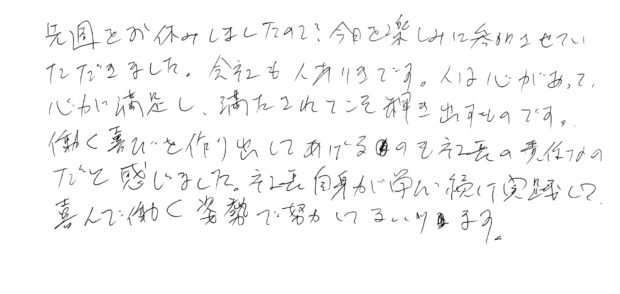 先週をお休みしましたので、今日を楽しみに参加させてい
ただきました。会社も人ありきです。人は心があって、
心が満足し、満たされてこそ輝き出すものです。
働く喜びを作り出してあげるのも社長の責任なの
だと感じました。社長自身が学び続け実践して
喜んで働く姿勢で努力してまいります。